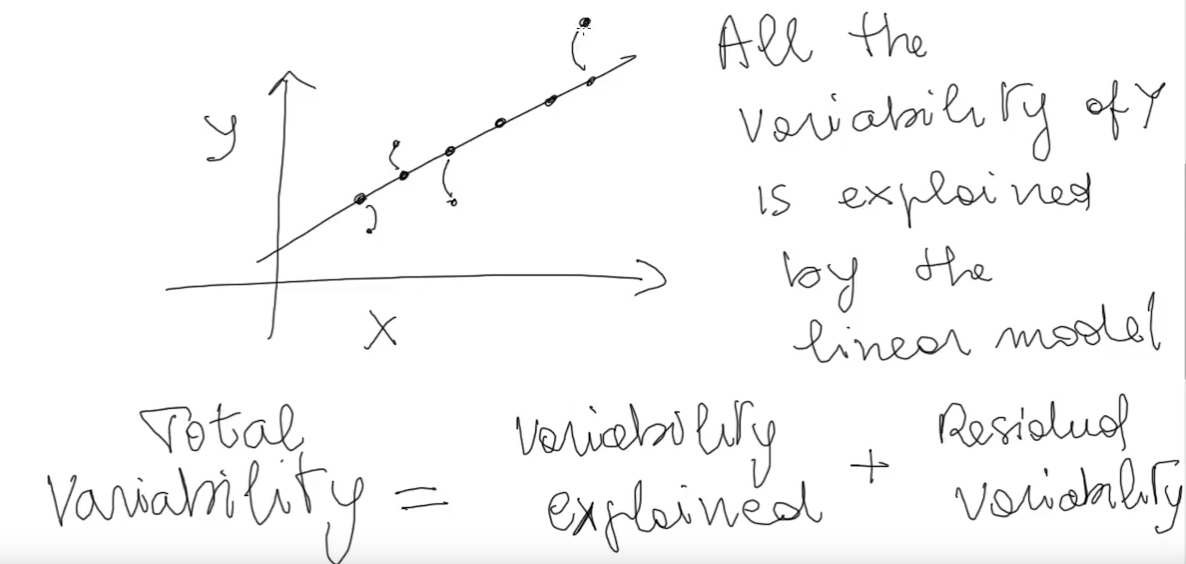 y
X
All the
variability of Y
is explained
by the
linear model
Total
Variability =
variability
explained
+
Residual
variability